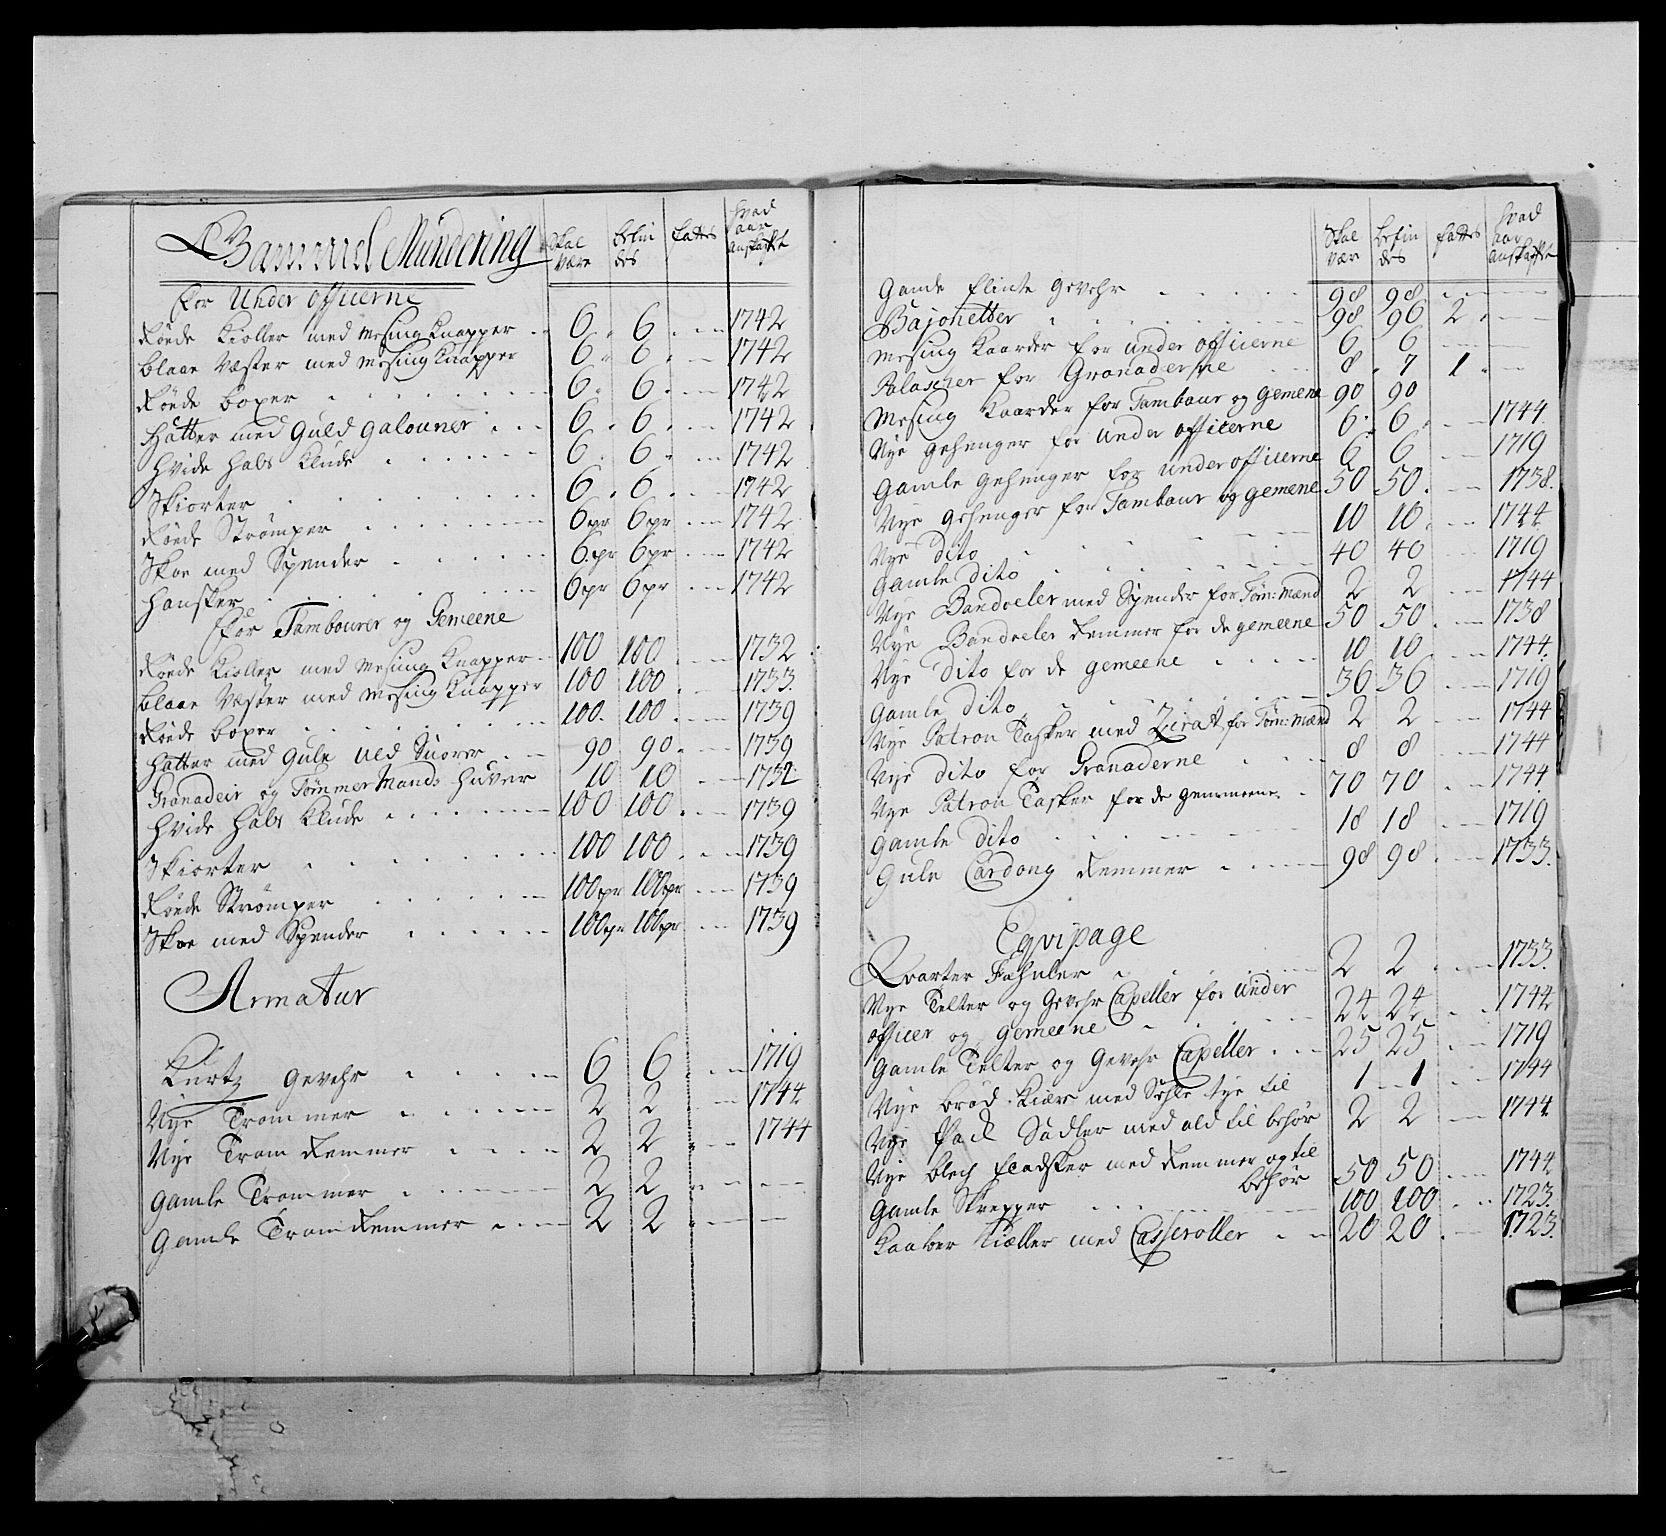 Gammel Mundering | Skal være | befin des | fattes | hvad aar anskaffet
For Under officerne
Røede Kioller med Messing Knapper 6 6 1742
blaae Væster med Messing Knapper 6 6 1742
Røede boxer 6 6 1742
Hatter med Guld galouner 6 6 1742
Hvide Hals Klude 6 6 1742
Skiorter 6 6 1742
Røede Strømper 6pr 6pr 1742
Skoe med Spender 6pr 6pr 1742
Hansker 6pr 6pr 1742
For Tambourer og Gemeene
Røede Kioller med Messing Knapper 100 100 1732
blaae Væster med Messing Knapper 100 100 1733
Røede boxer 100 100 1739
Hatter med Gule Uld Snorer 90 90 1739
Granadeir og Tømmer Mands Huver 10 10 1732
Hvide Hals Klude 100 100 1739
Skiorter 100 100 1739
Røede Strømper 100pr 100pr 1739
Skoe med Spender 100pr 100pr 1739
Armatur
Kurtz gevehr 6 6 1719
Nye Trommer 2 2 1744
Nye Trom Remmer 2 2 1744
gamle Trommer 2 2
Gamle Trom Remmer 2 2
Skal vær | befin des | fattes | hvad aar anskaffet
Gamle flinte gevehr 98 98
Bajonetter 98 96 2
Messing Kaarder for under officerne 6 6
Palascher for Granaderne 8 7 1
Messing Kaarder for Tambour og Gemene 90 90
Nye gehenger for under officerne 6 6 1744
Gamle gehenger for under officerne 6 6 1719
Nye gehenger for Tambour og gemene 50 50 1738
Nye dito 10 10 1744
Gamle dito 40 40 1719
Nye Bandoeler med Spender for Tøm:Mænd 2 2 1744
Nye Bandoeler Remmer for de gemeene 50 50 1738
Nye dito for de gemeene 10 10 1744
Gamle dito 36 36 1719
Nye Patron Tasker med Zirat for Tøm:Mænd 2 2 1744
Nye dito for Granaderne 8 8 1744
Nye Patron Tasker for de gemmeene 70 70 1744
Gamle dito 18 18 1719
Gule Cardong Remmer 98 98 1733
Eqvipage
Qvarter Fahnler 2 2 1733
Nye Telter og Gevehr Capeller for under
officer og gemeene 24 24 1744
Gamle Telter og Gevehr Capeller 25 25 1719
Nye brød Kiærr med Sehle tye til 1 1 1744
Nye Pack Sadler med ald til behør 2 2 1744
Nye blech fladsker med Remmer og til
behør 50 50 1744
Gamle Skrepper 100 100 1723
Kaaber Kiæller med Casseroller 20 20 1723